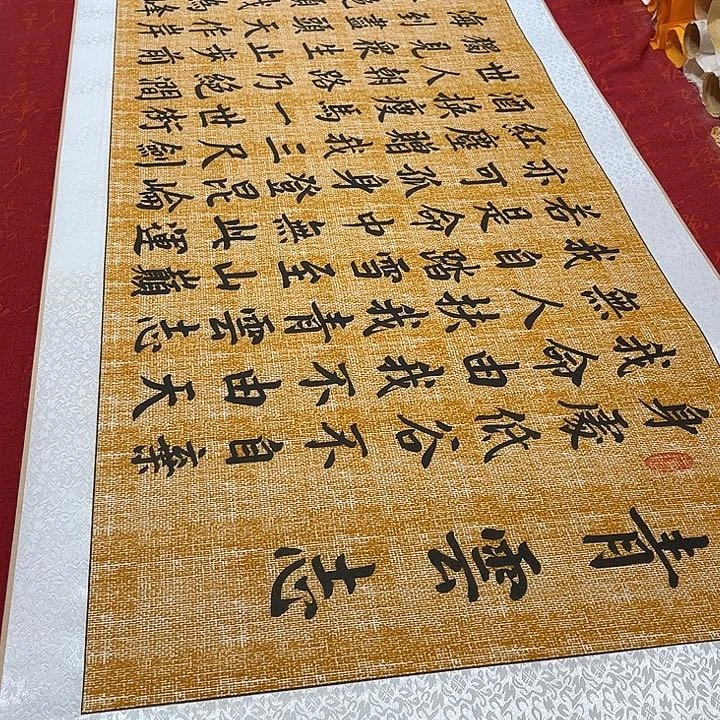 青雲志
身處低谷不自棄
我命由我不由天
無人扶我青雲志
我自踏雪至山巔
若是命中無此運
亦可孤身登昆崘
紅塵贈我三尺劍
酒換瘦馬一世街
世人朝路乃絕澗
獨見衆生止步前
海到盡頭天作岸